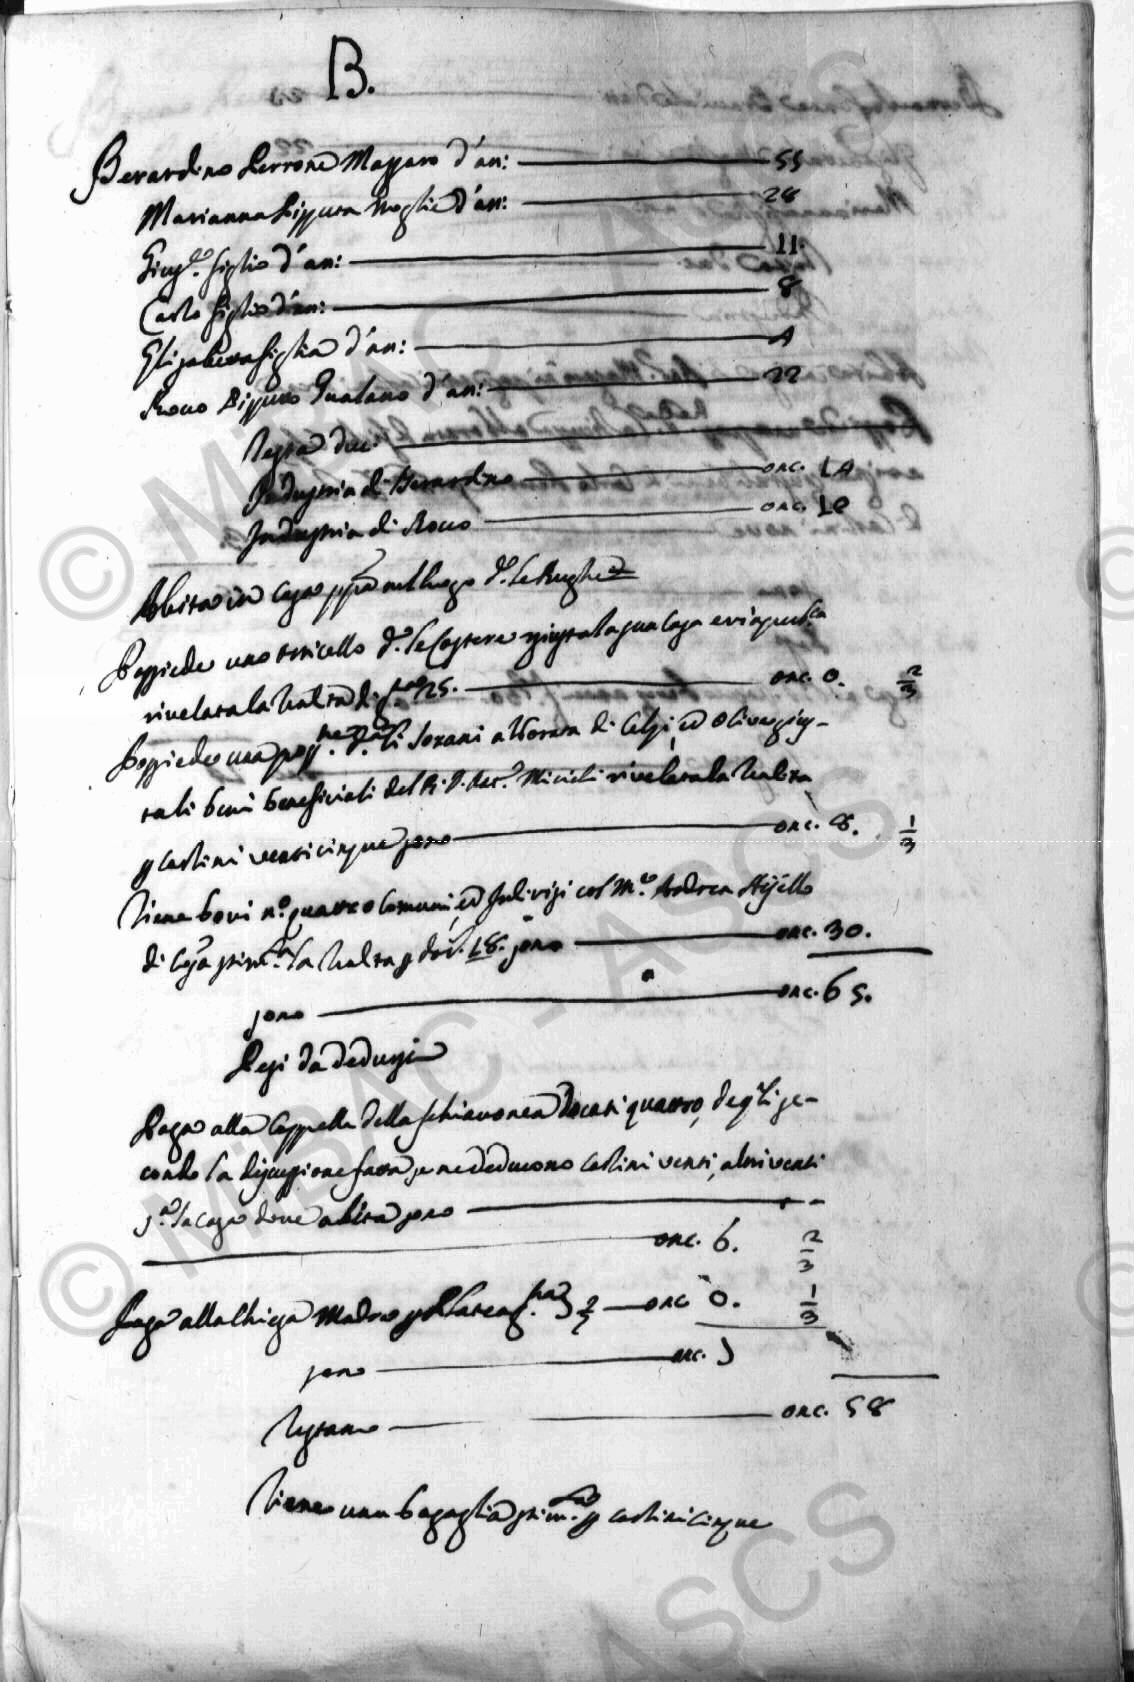 B.
Berardino Perrone Massaro d'an: 55
Marianna Pizzuta moglie d'an: 28
Gius.e figlio d'an: 11
Carlo figlio d'an: 8
Elisabetta figlia d'an: 4
Rocco Pizzuto d'an: 22
Testa duc:
Industria di Berardino onc. 14
Industria di Rocco onc. 12
Abita in casa pp.a nel luogo d.o le Rughe
Possiede uno orticello d.o le Costere giusta la sua casa
rivelata la rendita di 25. onc. 0. 2/3
Possiede una poss.ne d.a li Sorani alborata di Celsi, ed olive
li beni beneficiati del R. D. Micieli rivelata la rendita
p carlini venticinque sono onc. 8. 1/3
Tiene bovi n.o quattro comuni, ed indivisi col M.co Andrea
di Casa la rendita p doc. 18. sono onc. 30.
sono onc. 65.
Pesi da dedursi
Paga alla Cappella della Schiavonea docati quattro, degli se-
condo la discussione fatta, se ne deducono carlini venti, altri venti
p.a la casa dove abita sono
onc. 6. 2/3
Paga alla Chiesa Madre onc 0. 1/3
sono onc. 7
Restano onc. 58
Tiene una bagaglia p carlini cinque
© MiBAC - ASCS
© MiBAC - ASCS
© MiBAC - ASCS